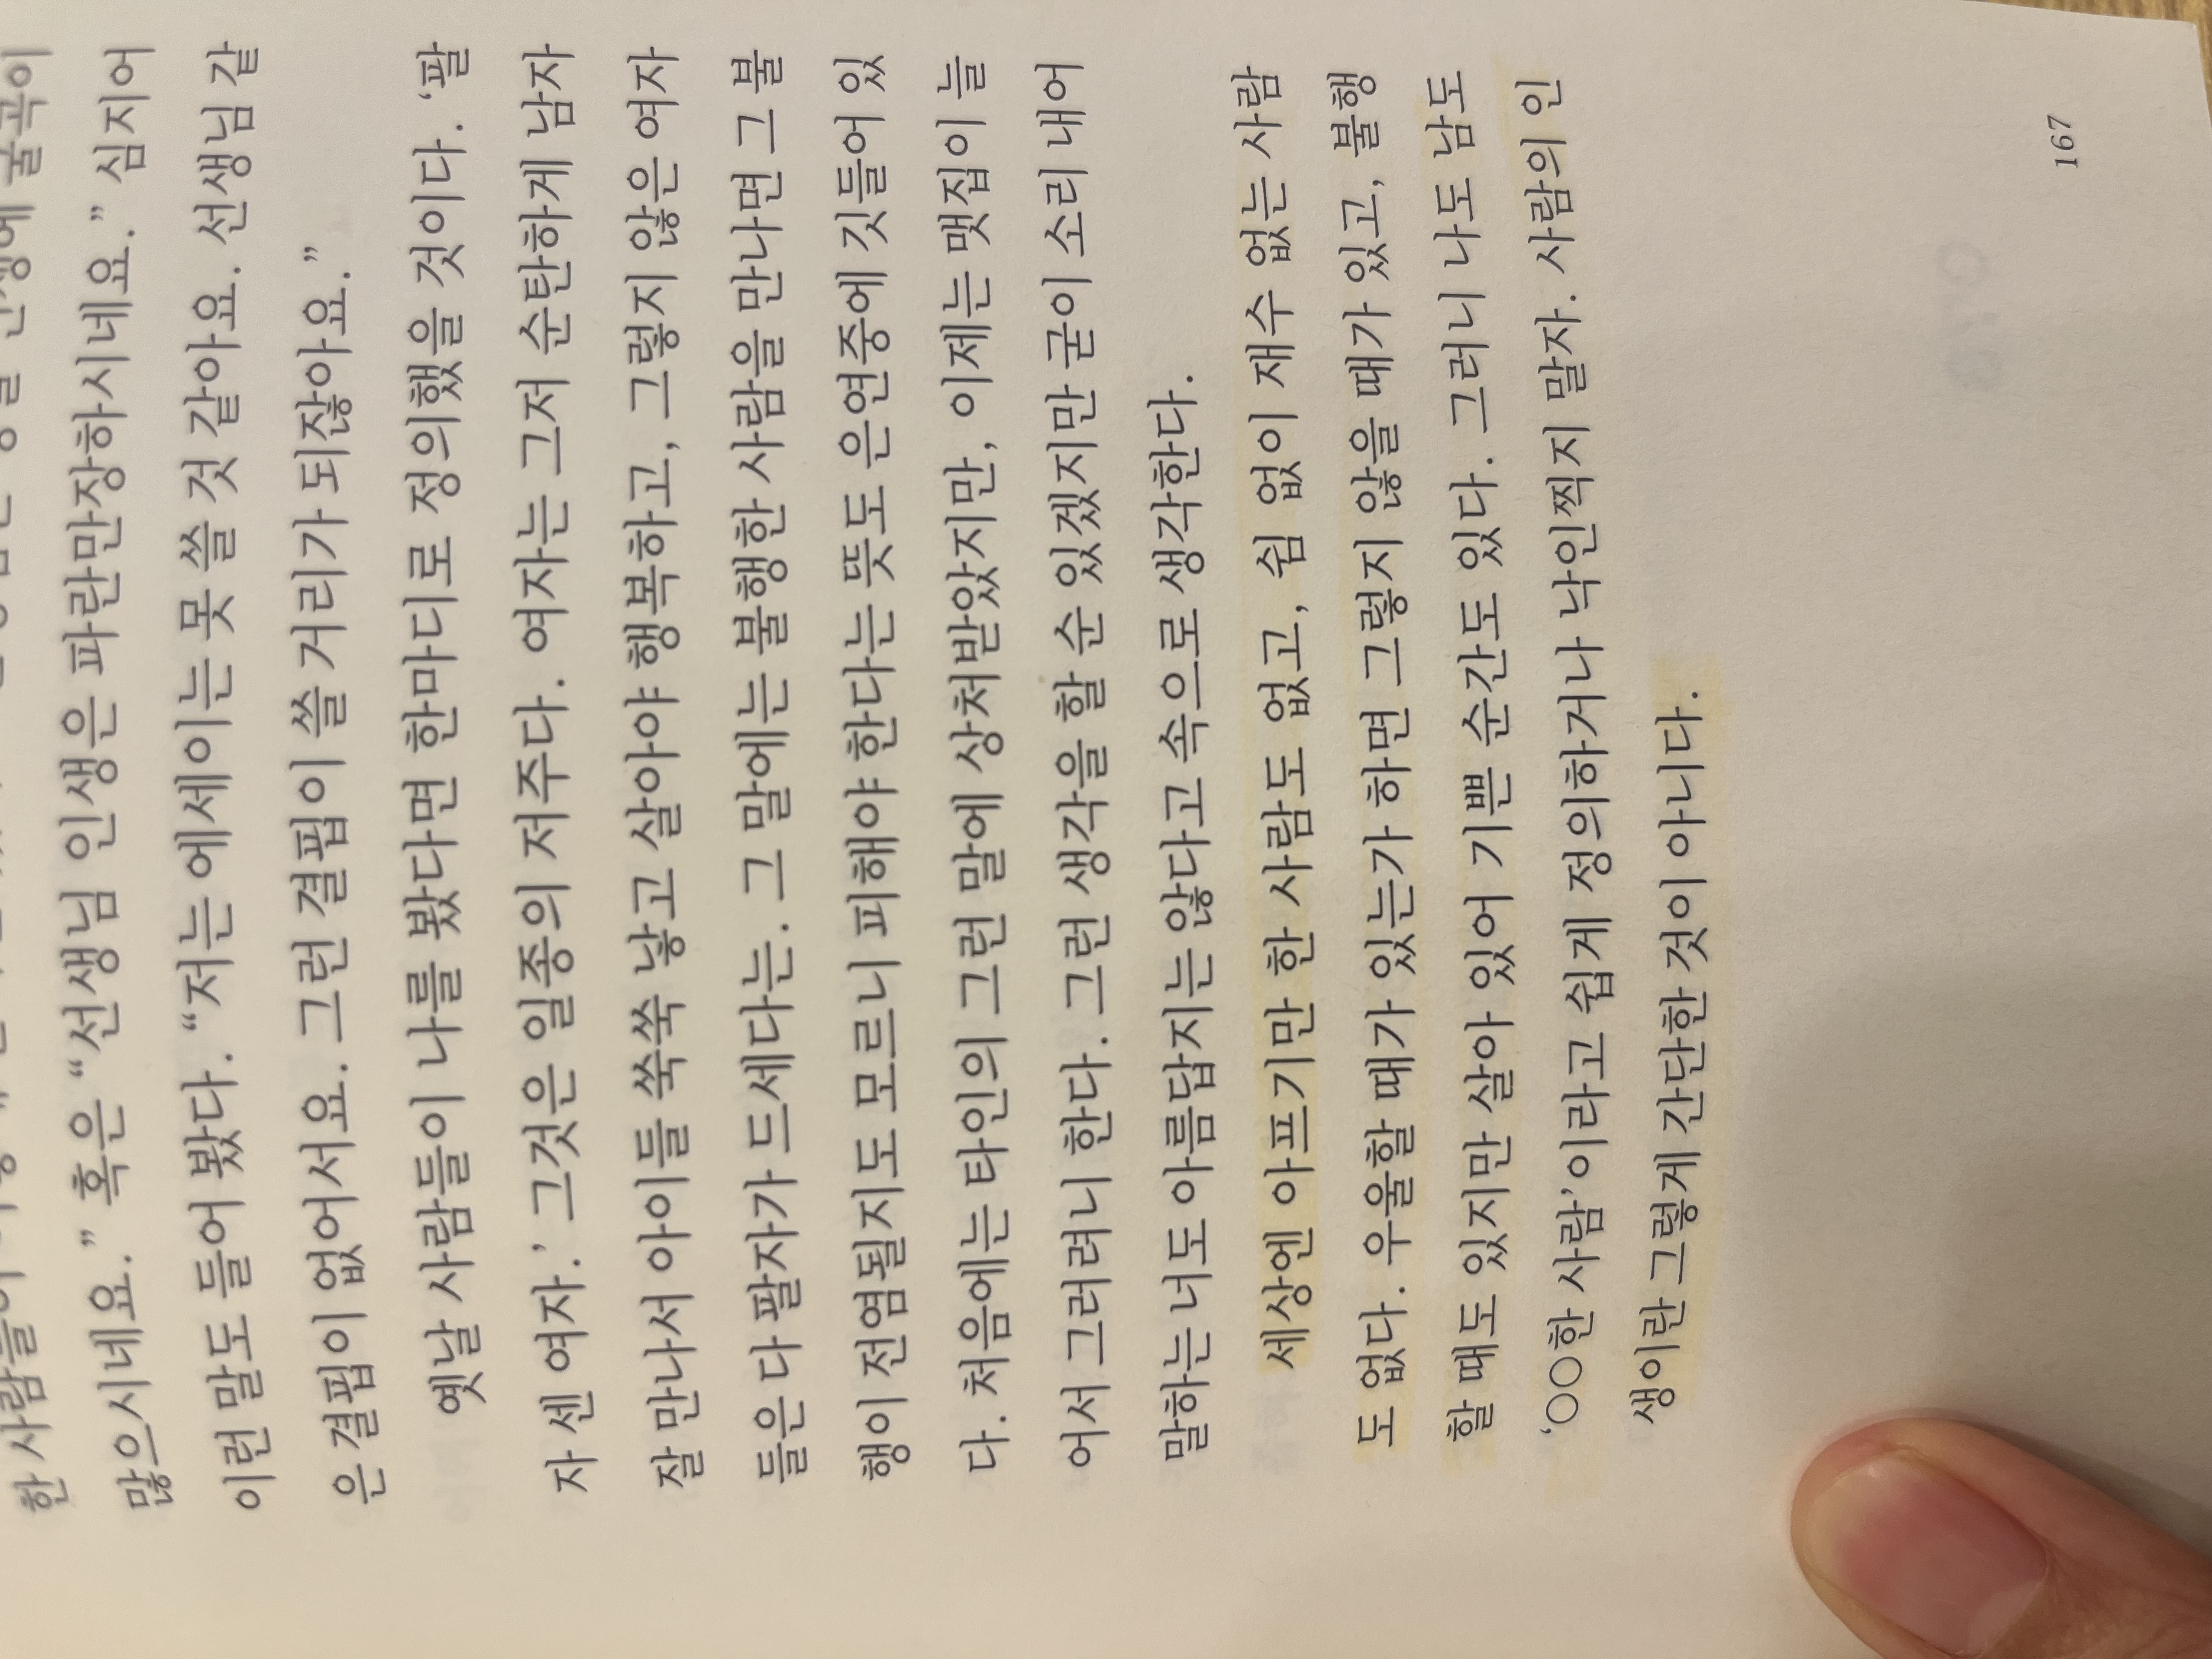 한 사람들이
굴곡이
많으시네요.” 혹은 “선생님 인생은 파란만장하시네요.” 심지어
이런 말도 들어 봤다. “저는 에세이는 못 쓸 것 같아요. 선생님 같
은 결핍이 없어서요. 그런 결핍이 쓸 거리가 되잖아요.”
옛날 사람들이 나를 봤다면 한마디로 정의했을 것이다. ‘팔
자 센 여자.’ 그것은 일종의 저주다. 여자는 그저 순탄하게 남자
잘 만나서 아이들 쑥쑥 낳고 살아야 행복하고, 그렇지 않은 여자
들은 다 팔자가 드세다는. 그 말에는 불행한 사람을 만나면 그 불
행이 전염될지도 모르니 피해야 한다는 뜻도 은연중에 깃들어 있
다. 처음에는 타인의 그런 말에 상처받았지만, 이제는 맷집이 늘
어서 그러려니 한다. 그런 생각을 할 순 있겠지만 굳이 소리 내어
말하는 너도 아름답지는 않다고 속으로 생각한다.
세상엔 아프기만 한 사람도 없고, 쉼 없이 재수 없는 사람
도 없다. 우울할 때가 있는가 하면 그렇지 않을 때가 있고, 불행
할 때도 있지만 살아 있어 기쁜 순간도 있다. 그러니 나도 남도
‘○○한 사람’이라고 쉽게 정의하거나 낙인찍지 말자. 사람의 인
생이란 그렇게 간단한 것이 아니다.
167